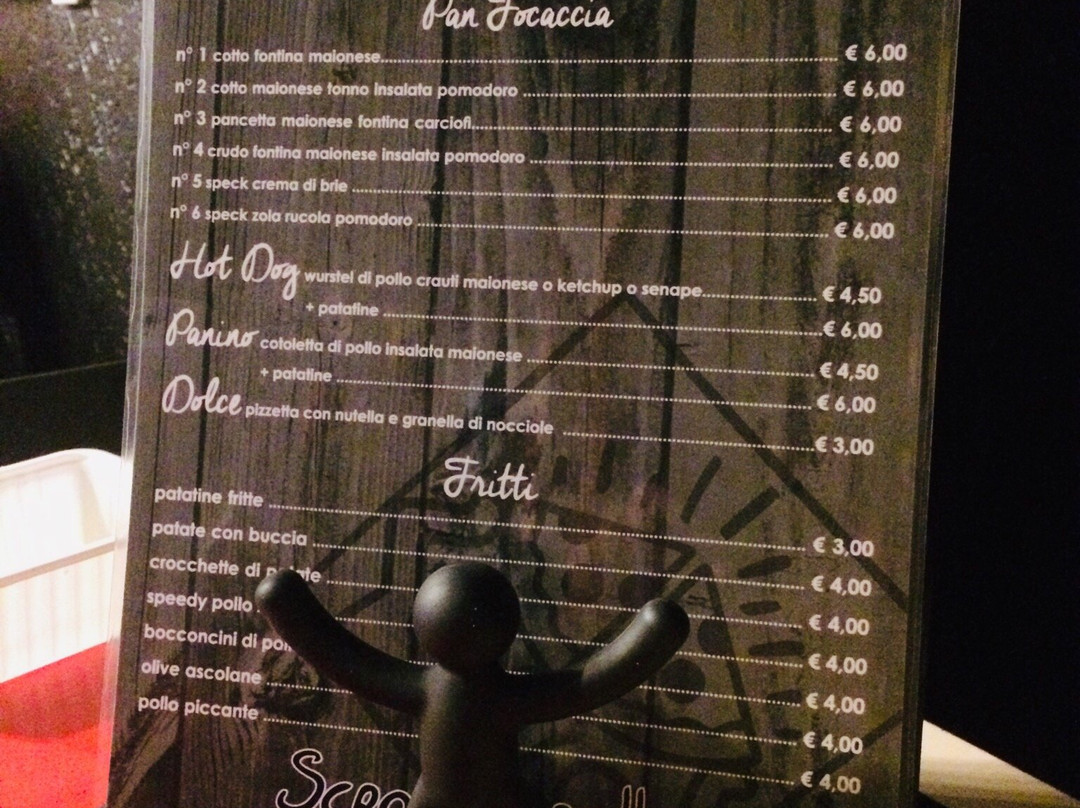 Pan Focaccia
n° 1 cotto fontina maionese € 6,00
n° 2 cotto maionese tonno insalata pomodoro € 6,00
n° 3 pancetta maionese fontina carciofi € 6,00
n° 4 crudo fontina maionese insalata pomodoro € 6,00
n° 5 speck crema di brie € 6,00
n° 6 speck zola rucola pomodoro € 6,00
Hot Dog wurstel di pollo crauti maionese o ketchup o senape € 4,50
+ patatine € 6,00
Panino cotoletta di pollo insalata maionese € 4,50
+ patatine € 6,00
Dolce pizzetta con nutella e granella di nocciole € 3,00
Fritti
patatine fritte € 3,00
patate con buccia € 4,00
crocchette di € 4,00
speedy pollo € 4,00
bocconcini di € 4,00
olive ascolane € 4,00
pollo piccante € 4,00